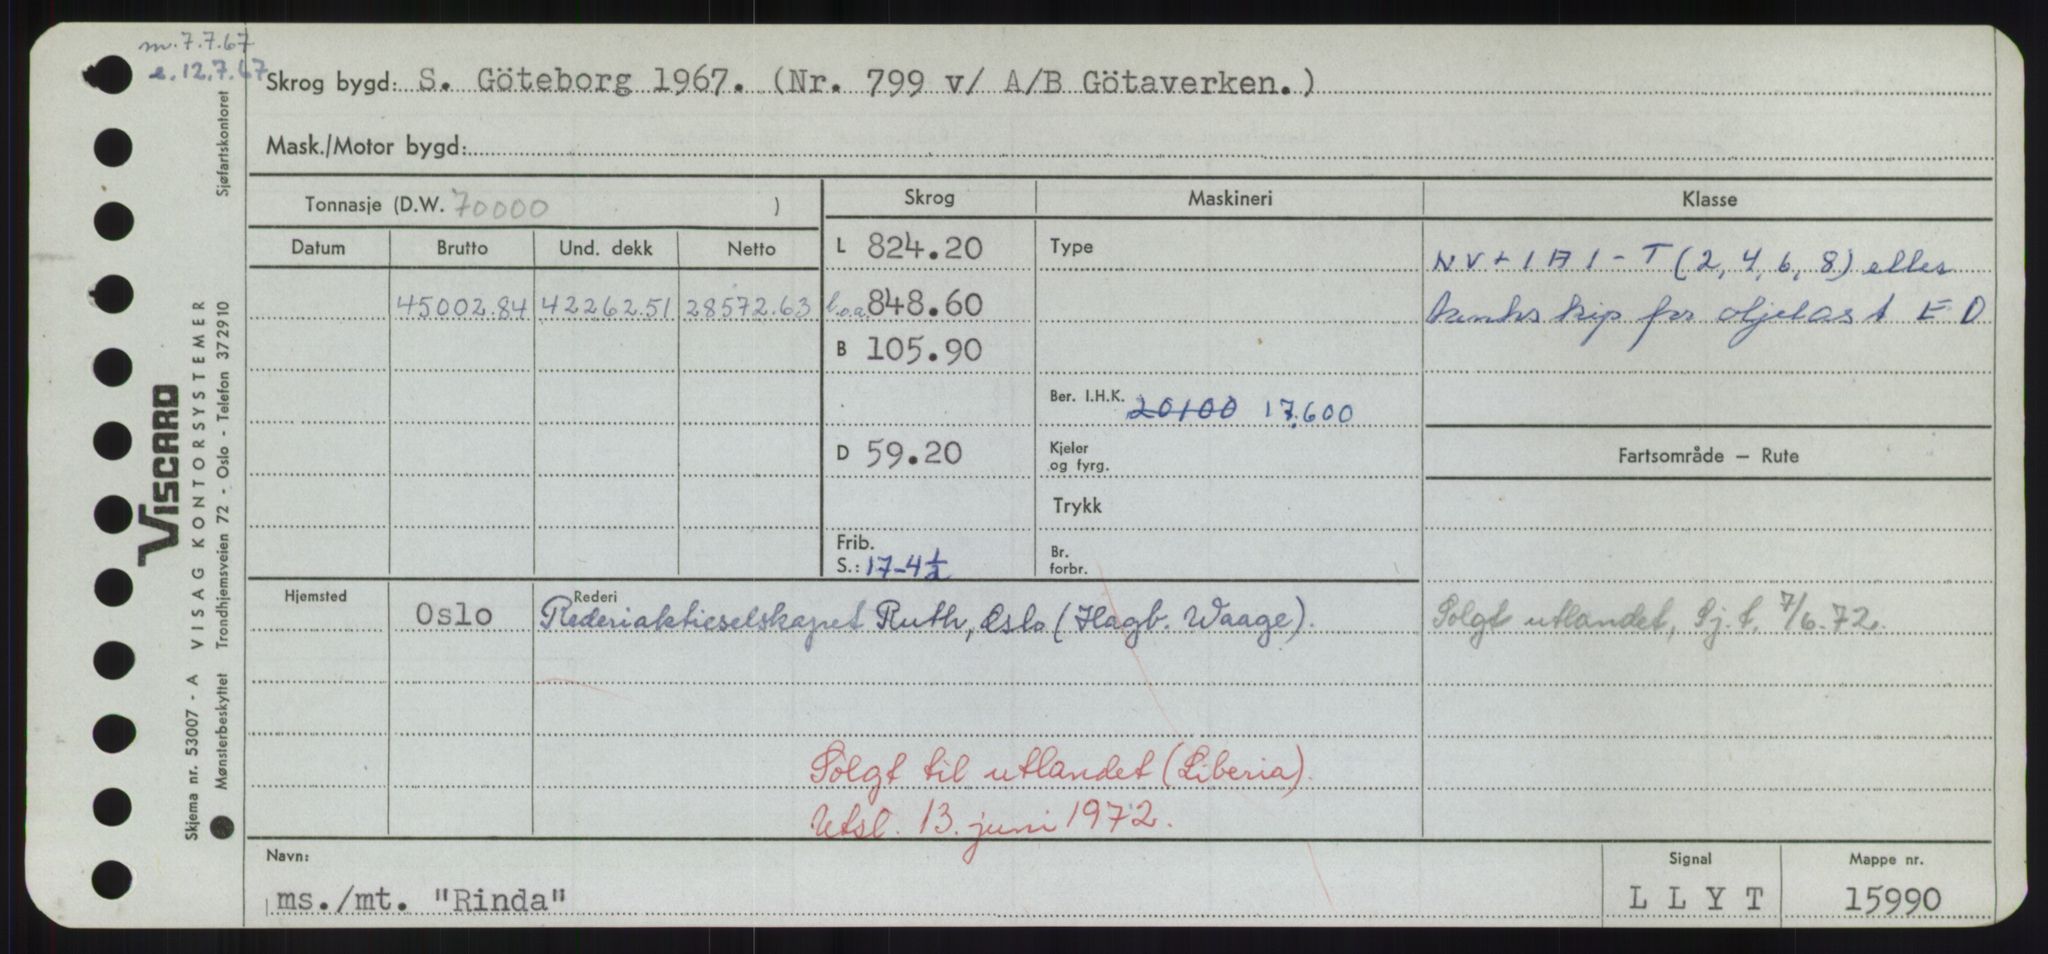 m. 7.7.67
e. 12.7.67
Skrog bygd: S. Göteborg 1967. (Nr. 799 v/ A/B Götaverken.)
Mask./Motor bygd:
Tonnasje (D.W. 70000 )
Skrog Maskineri Klasse
Datum Brutto Und. dekk Netto
L 824.20 Type NV + 1 A 1 - T (2, 4, 6, 8) eller
45002.84 42262.51 28572.63 l.o.a. 848.60 tankskip for oljelast E D
B 105.90
Ber. I.H.K. 20100 17.600
D 59.20 Kjeler og fyrg. Fartsområde — Rute
Trykk
Frib. S.: 17-4½ Br. forbr.
Hjemsted Rederi
Oslo Rederiaktieselskapet Ruth, Oslo (Hagb. Waage). Solgt utlandet, Sj. t. 7/6-72.
Solgt til utlandet (Liberia).
Utsl. 13. juni 1972.
Navn: Signal Mappe nr.
ms./mt. "Rinda" L L Y T 15990
Skjema nr. 53007 - A VISAG KONTORSYSTEMER
Mønsterbeskyttet Trondhjemsveien 72 - Oslo - Telefon 372910 Sjøfartskontoret
VISCARD